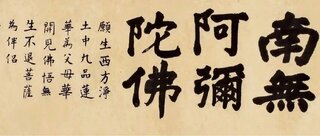 南無
阿彌
陀佛
願生西方淨
土中九品蓮
華為父母華
開見佛悟無
生不退菩薩
為伴侶